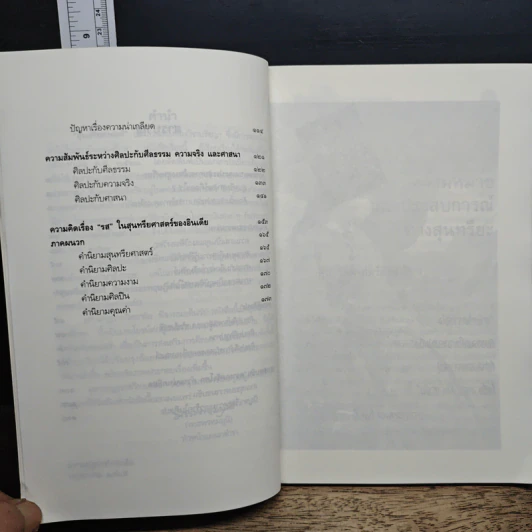 ปัญหาเรื่องความน่าเกลียด ๑๑๔
ความสัมพันธ์ระหว่างศิลปะกับศีลธรรม ความจริง และศาสนา ๑๒๑
ศิลปะกับศีลธรรม ๑๒๒
ศิลปะกับความจริง ๑๓๓
ศิลปะกับศาสนา ๑๔๑
ความคิดเรื่อง "รส" ในสุนทรียศาสตร์ของอินเดีย ๑๕๓
ภาคผนวก ๑๖๕
คำนิยามสุนทรียศาสตร์ ๑๖๕
คำนิยามศิลปะ ๑๖๗
คำนิยามความงาม ๑๗๐
คำนิยามศิลปิน ๑๗๒
คำนิยามคุณค่า ๑๗๓